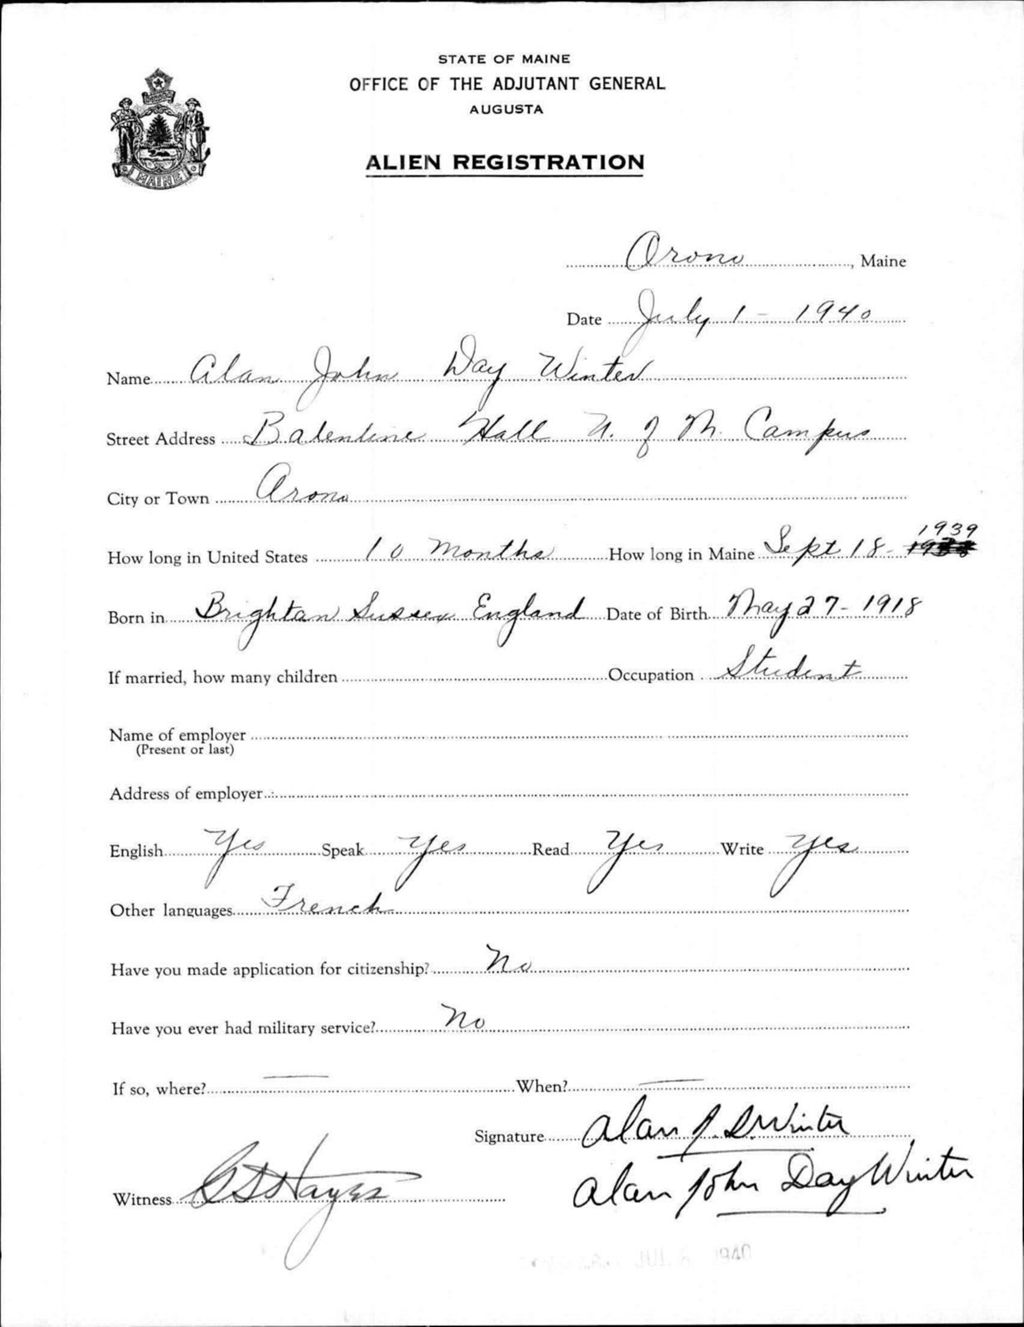 STATE OF MAINE
OFFICE OF THE ADJUTANT GENERAL
AUGUSTA
MAINE
ALIEN REGISTRATION
Orono, Maine
Date July 1 - 1940
Name Alan John Day Winter
Street Address Balentine Hall U. of M. Campus
City or Town Orono
1939
How long in United States 10 months How long in Maine Sept 18-
Born in Brighton Sussex England Date of Birth May 27-1918
If married, how many children Occupation Student
Name of employer
(Present or last)
Address of employer
English Yes Speak Yes Read Yes Write Yes
Other languages French
Have you made application for citizenship? No
Have you ever had military service? No
If so, where? — When? —
Signature Alan J. D. Winter
Witness Hayes Alan John Day Winter
JUL 1940